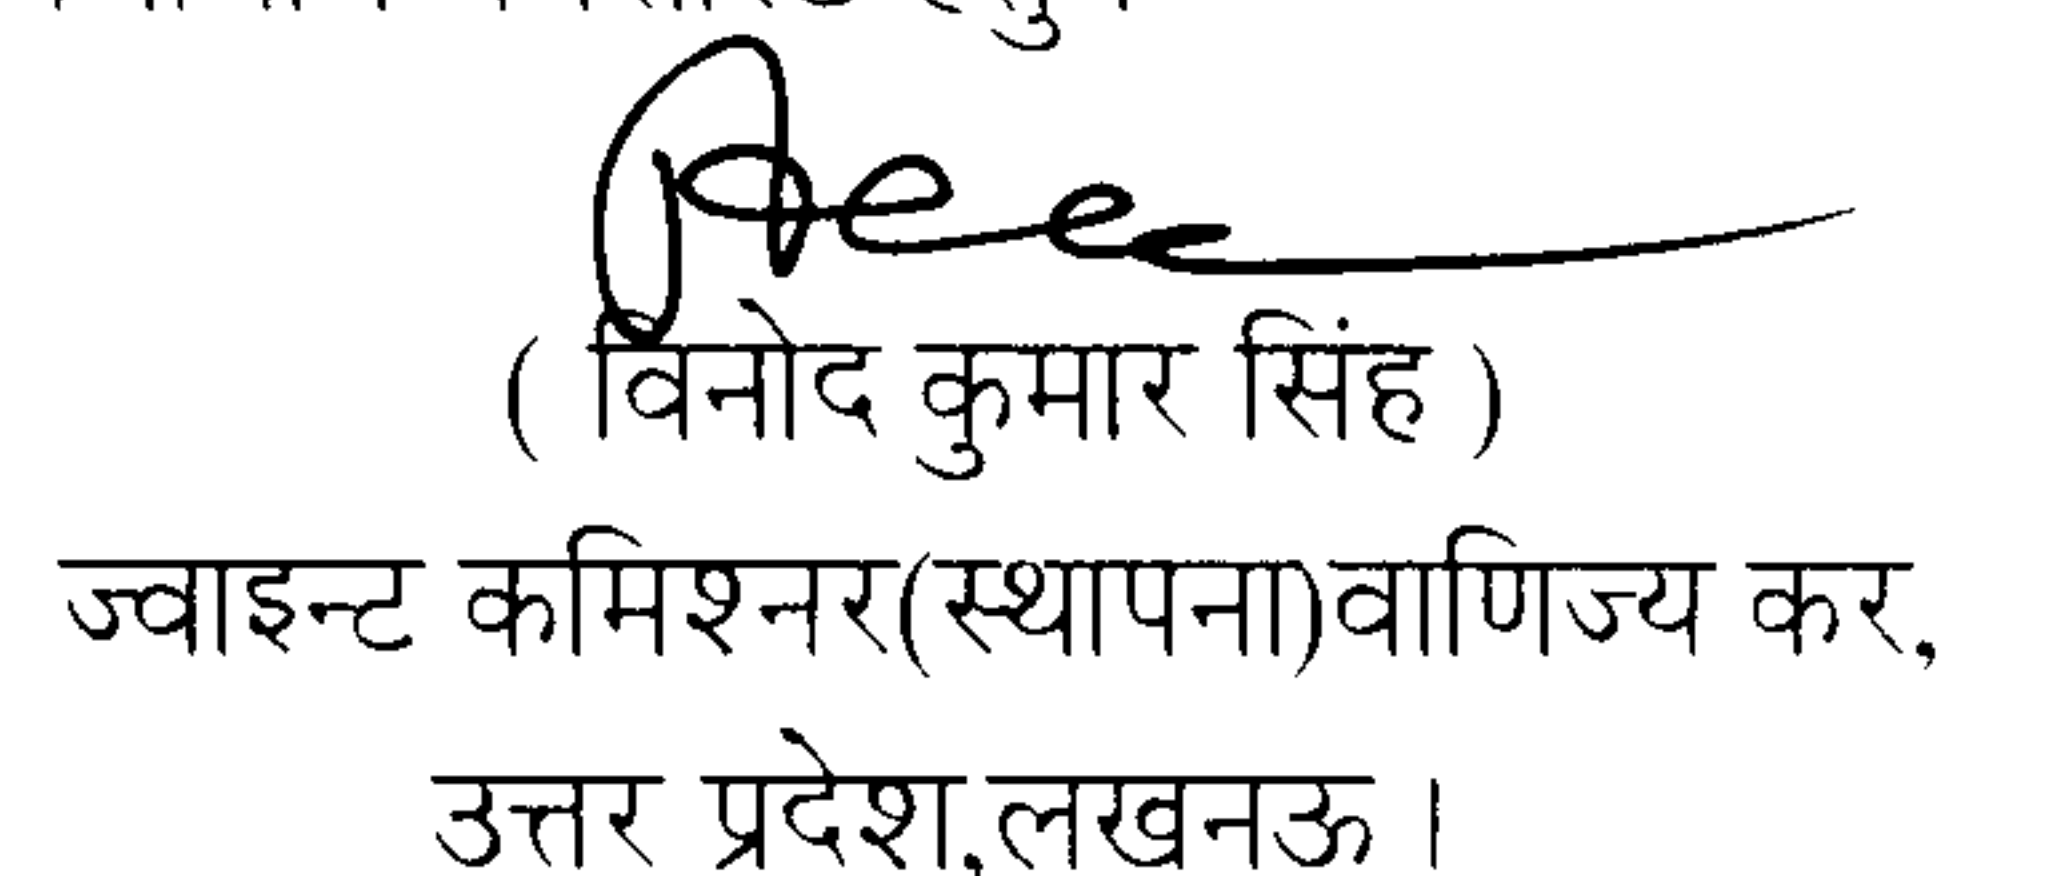 ( विनोद कुमार सिंह )
ज्वाइन्ट कमिश्नर(स्थापना)वाणिज्य कर,
उत्तर प्रदेश,लखनऊ ।